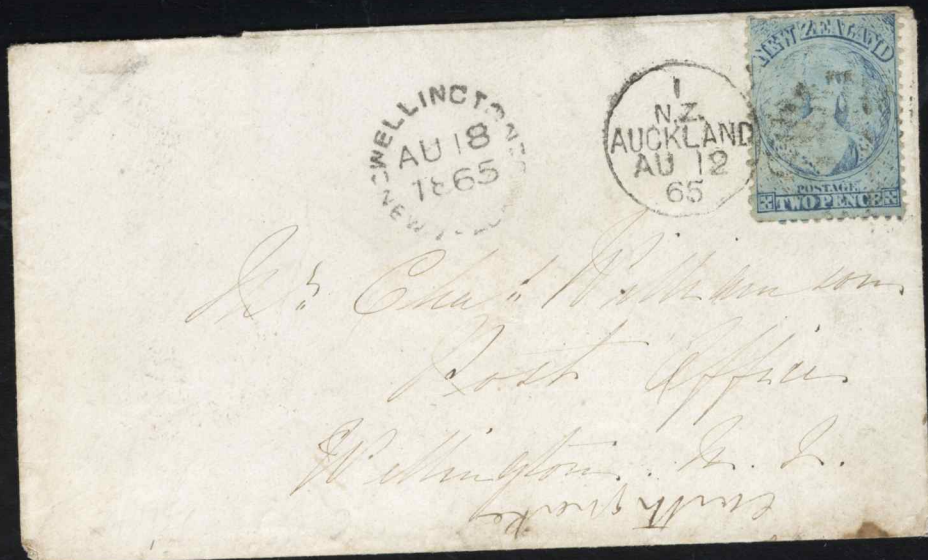 NEW ZEALAND
POSTAGE
TWO PENCE
1
N.Z.
AUCKLAND
AU 12
65
WELLINGTON
AU 18
1865
NEW
Mrs Chas Williamson
Post Office
Wellington. N. Z.